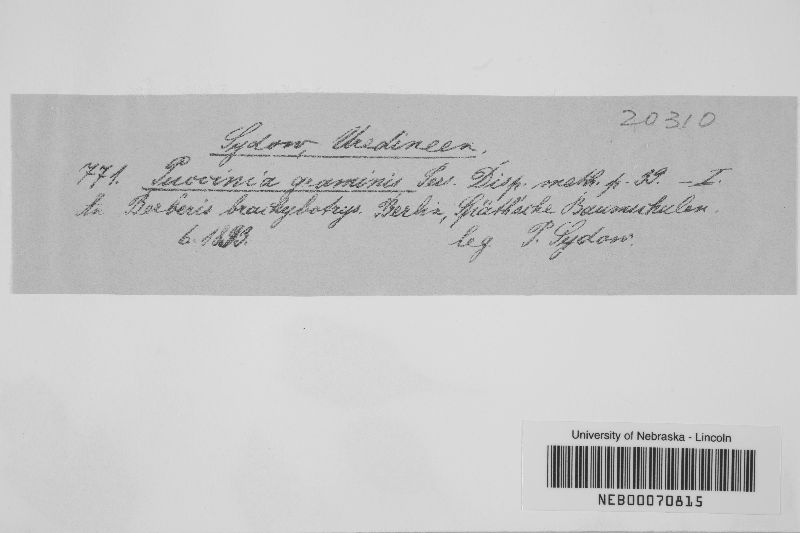 20310
Sydow, Uredineen.
771. Puccinia graminis Pers. Disp. meth. p. 39. – I.
An Berberis brachybotrys. Berlin, Späth'sche Baumschulen.
6. 1893. leg P. Sydow.
University of Nebraska - Lincoln
NEB00070815